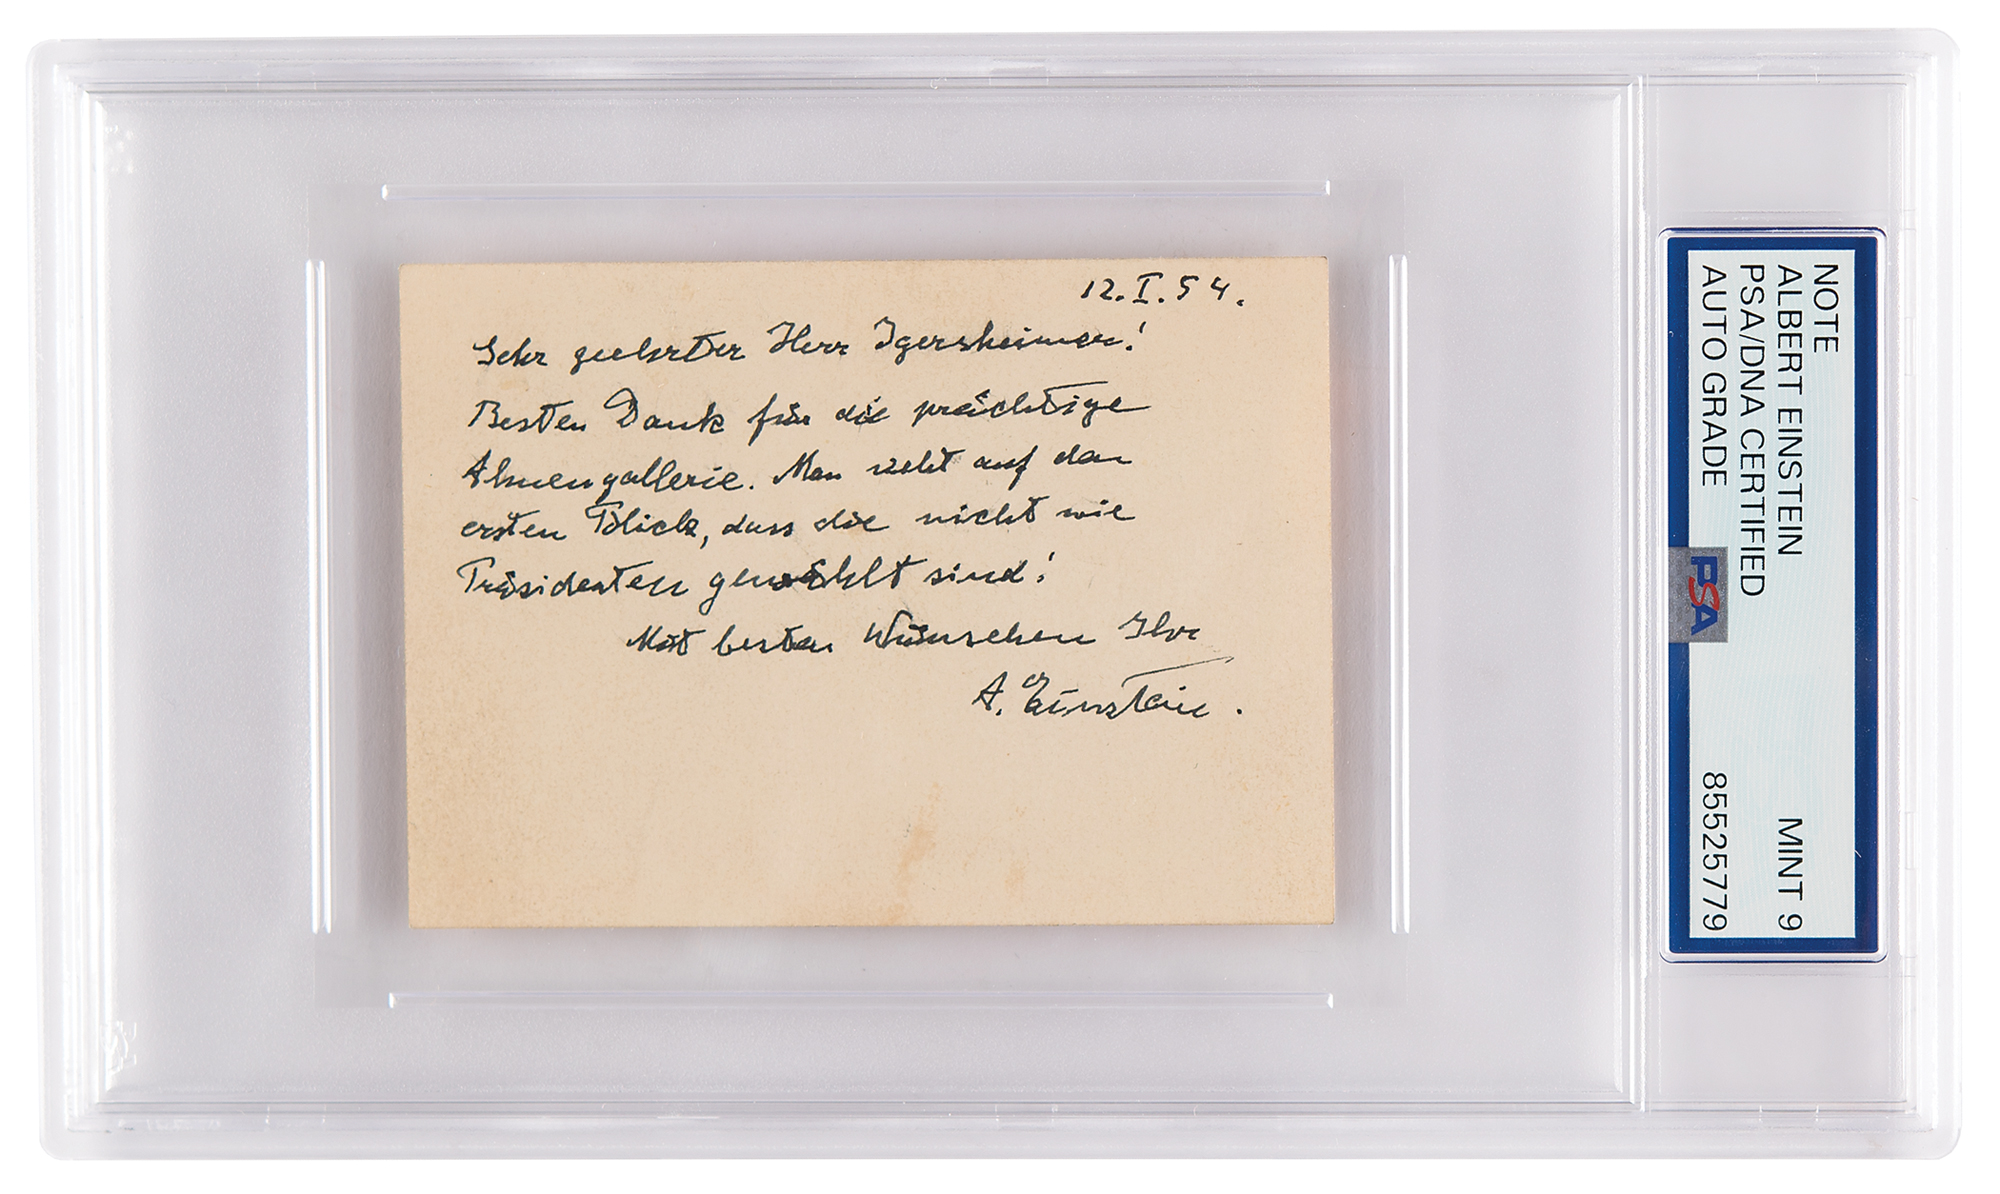 12.I.54.
Sehr geehrter Herr Igersheimer!
Besten Dank für die prächtige
Ahnengallerie. Man sieht auf den
ersten Blick, dass die nicht wie
Präsidenten gewählt sind!
Mit besten Wünschen Ihr
A. Einstein.
NOTE
ALBERT EINSTEIN MINT 9
PSA/DNA CERTIFIED
AUTO GRADE 85525779
PSA